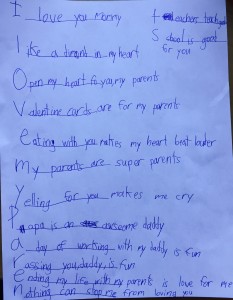 I love you Mommy
like a dirant in my heart
Open my heart to you my parents
Valentine cards are for my parents
eating with you makes my heart beat louder
my parents are super parents
Yelling for you makes me cry
Papa is an awesome daddy
a day of working with my daddy is fun
rassing you, daddy, is fun
ending my life with my parents is love for me
nothing can stop me from loving you
teachers teach
School is great
for you